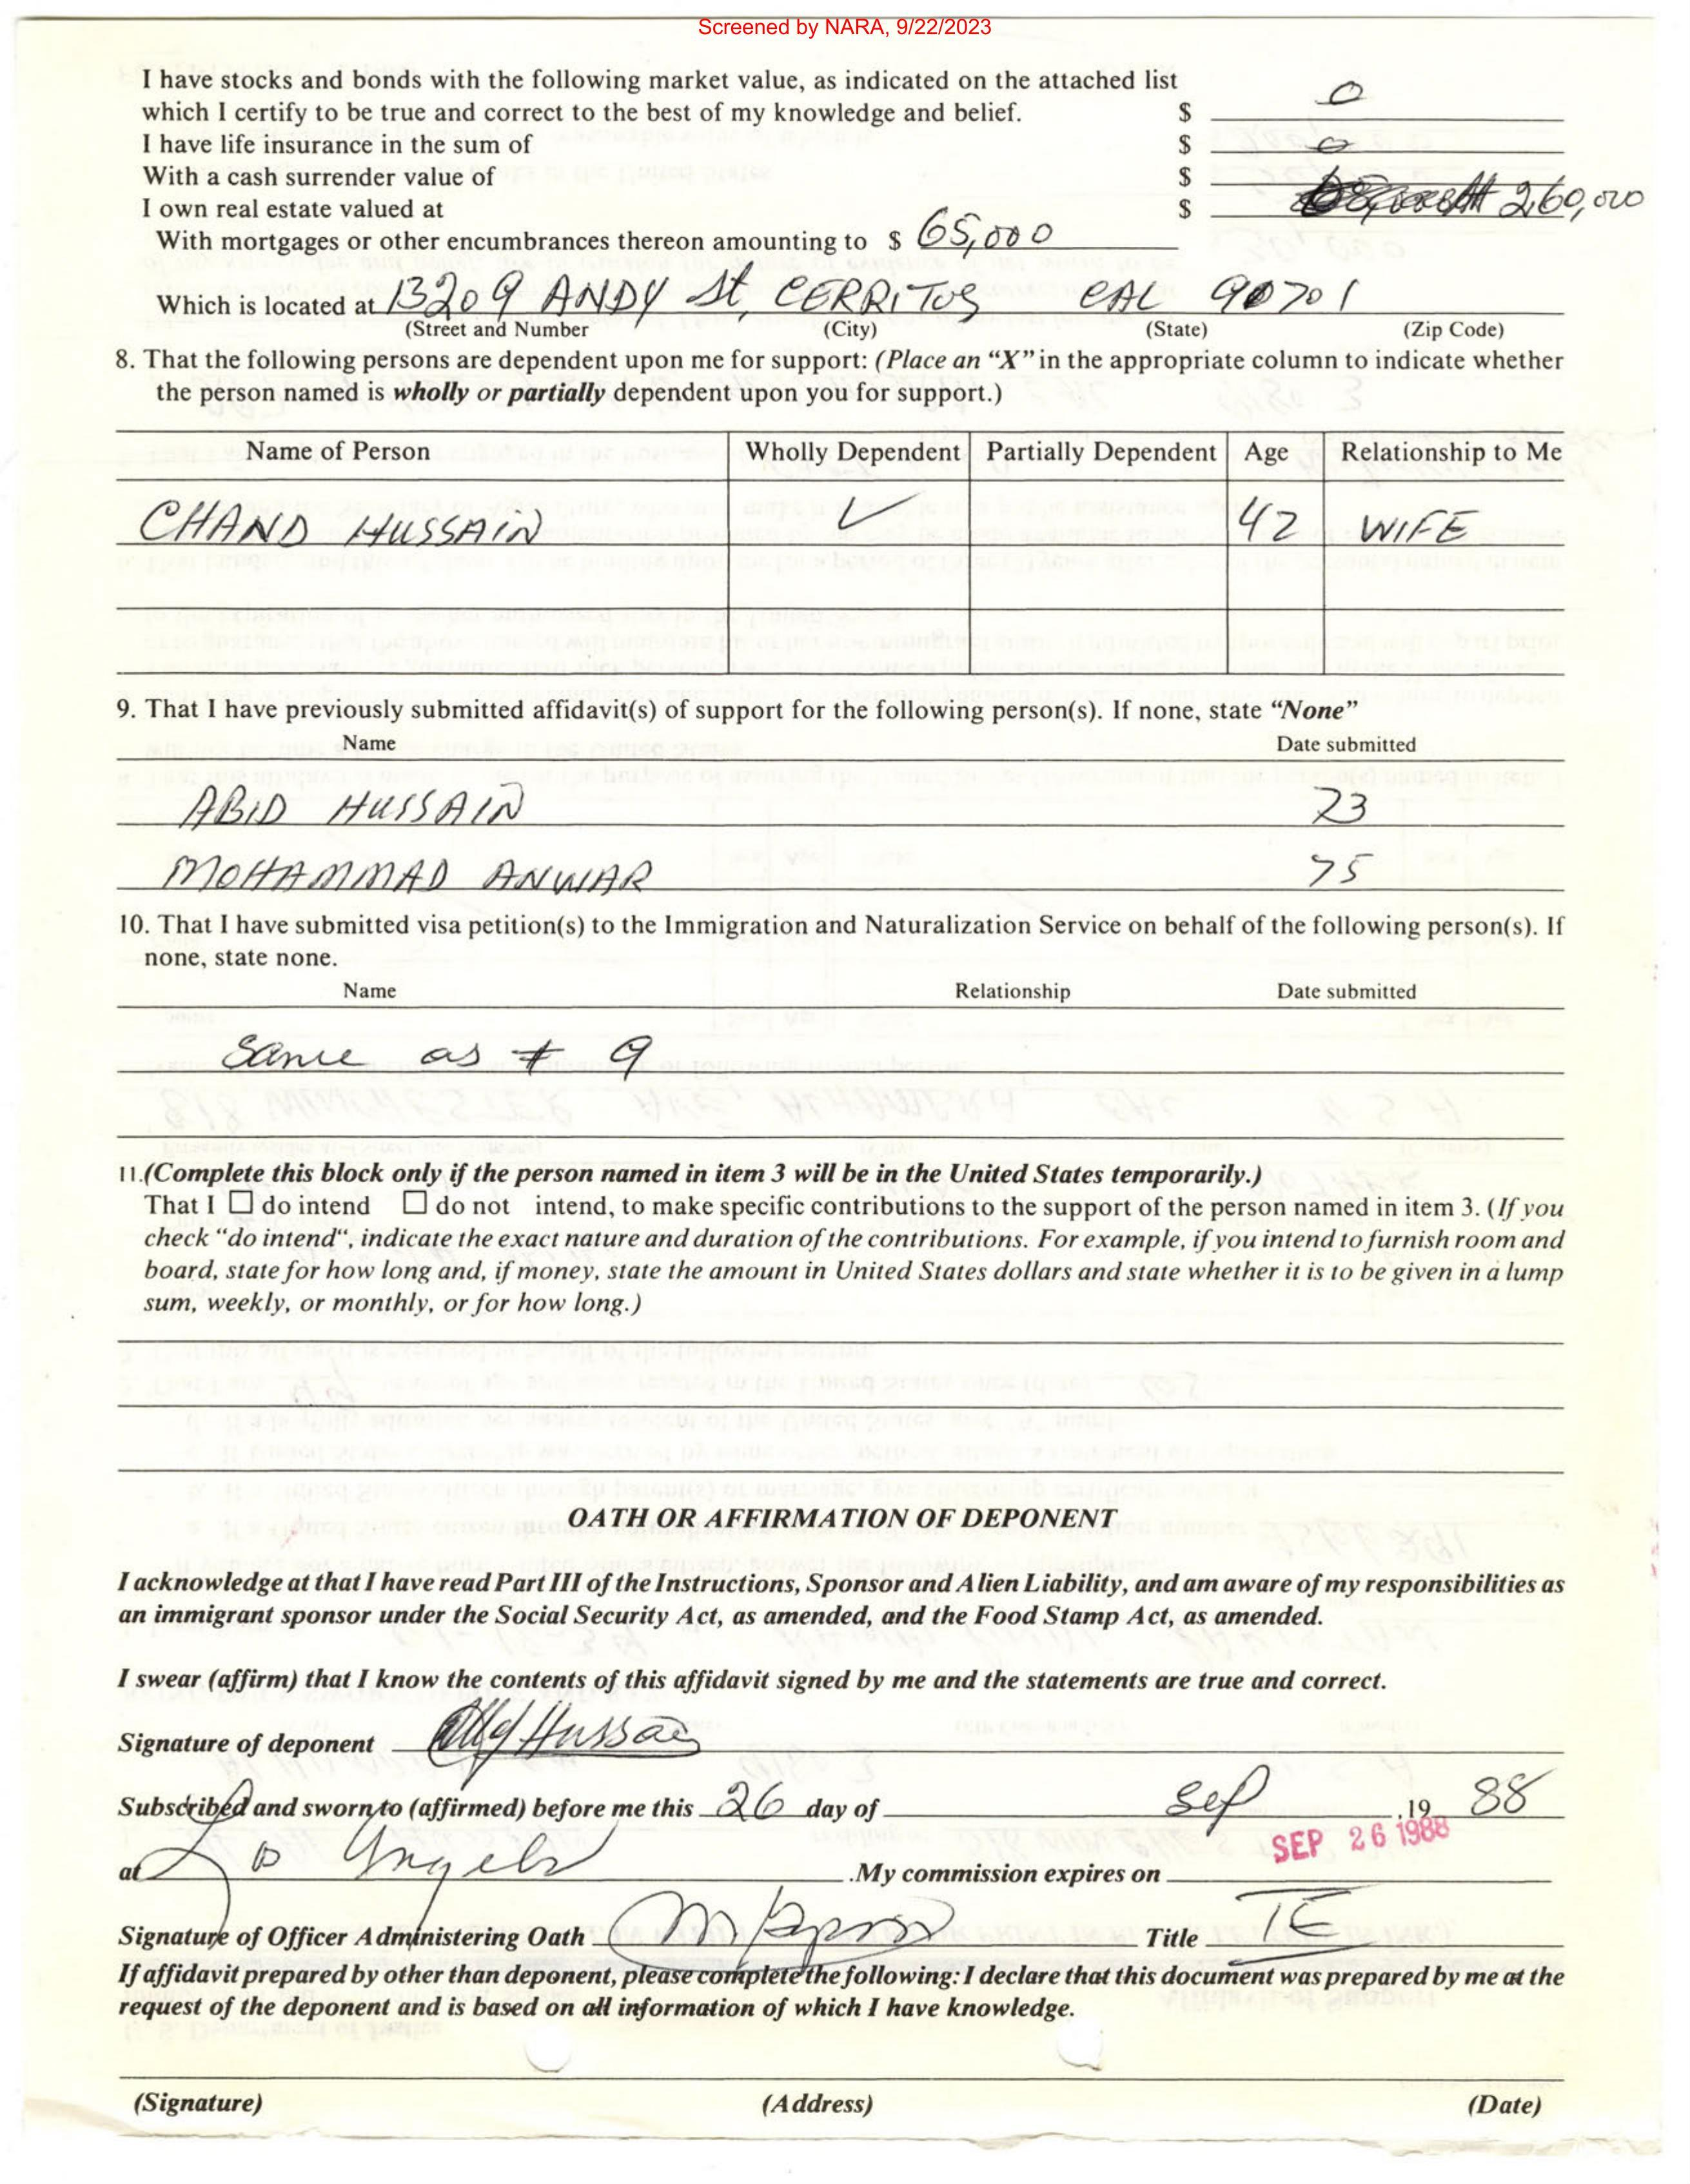 Screened by NARA, 9/22/2023
I have stocks and bonds with the following market value, as indicated on the attached list
which I certify to be true and correct to the best of my knowledge and belief. $ 0
I have life insurance in the sum of $ 0
With a cash surrender value of $
I own real estate valued at $ 260,000
With mortgages or other encumbrances thereon amounting to $ 65,000
Which is located at 13209 ANDY St, CERRITOS CAL 90701
(Street and Number (City) (State) (Zip Code)
8. That the following persons are dependent upon me for support: (Place an “X” in the appropriate column to indicate whether
the person named is wholly or partially dependent upon you for support.)
Name of Person Wholly Dependent Partially Dependent Age Relationship to Me
CHAND HUSSAIN ✓ 42 WIFE
9. That I have previously submitted affidavit(s) of support for the following person(s). If none, state “None”
Name Date submitted
ABID HUSSAIN 73
MOHAMMAD ANWAR 75
10. That I have submitted visa petition(s) to the Immigration and Naturalization Service on behalf of the following person(s). If
none, state none.
Name Relationship Date submitted
Same as # 9
11.(Complete this block only if the person named in item 3 will be in the United States temporarily.)
That I ☐ do intend ☐ do not intend, to make specific contributions to the support of the person named in item 3. (If you
check “do intend“, indicate the exact nature and duration of the contributions. For example, if you intend to furnish room and
board, state for how long and, if money, state the amount in United States dollars and state whether it is to be given in a lump
sum, weekly, or monthly, or for how long.)
OATH OR AFFIRMATION OF DEPONENT
I acknowledge at that I have read Part III of the Instructions, Sponsor and Alien Liability, and am aware of my responsibilities as
an immigrant sponsor under the Social Security Act, as amended, and the Food Stamp Act, as amended.
I swear (affirm) that I know the contents of this affidavit signed by me and the statements are true and correct.
Signature of deponent Hussain
Subscribed and sworn to (affirmed) before me this 26 day of Sep ,19 88
SEP 26 1988
at Los Angeles .My commission expires on
Signature of Officer Administering Oath Title IE
If affidavit prepared by other than deponent, please complete the following: I declare that this document was prepared by me at the
request of the deponent and is based on all information of which I have knowledge.
(Signature) (Address) (Date)